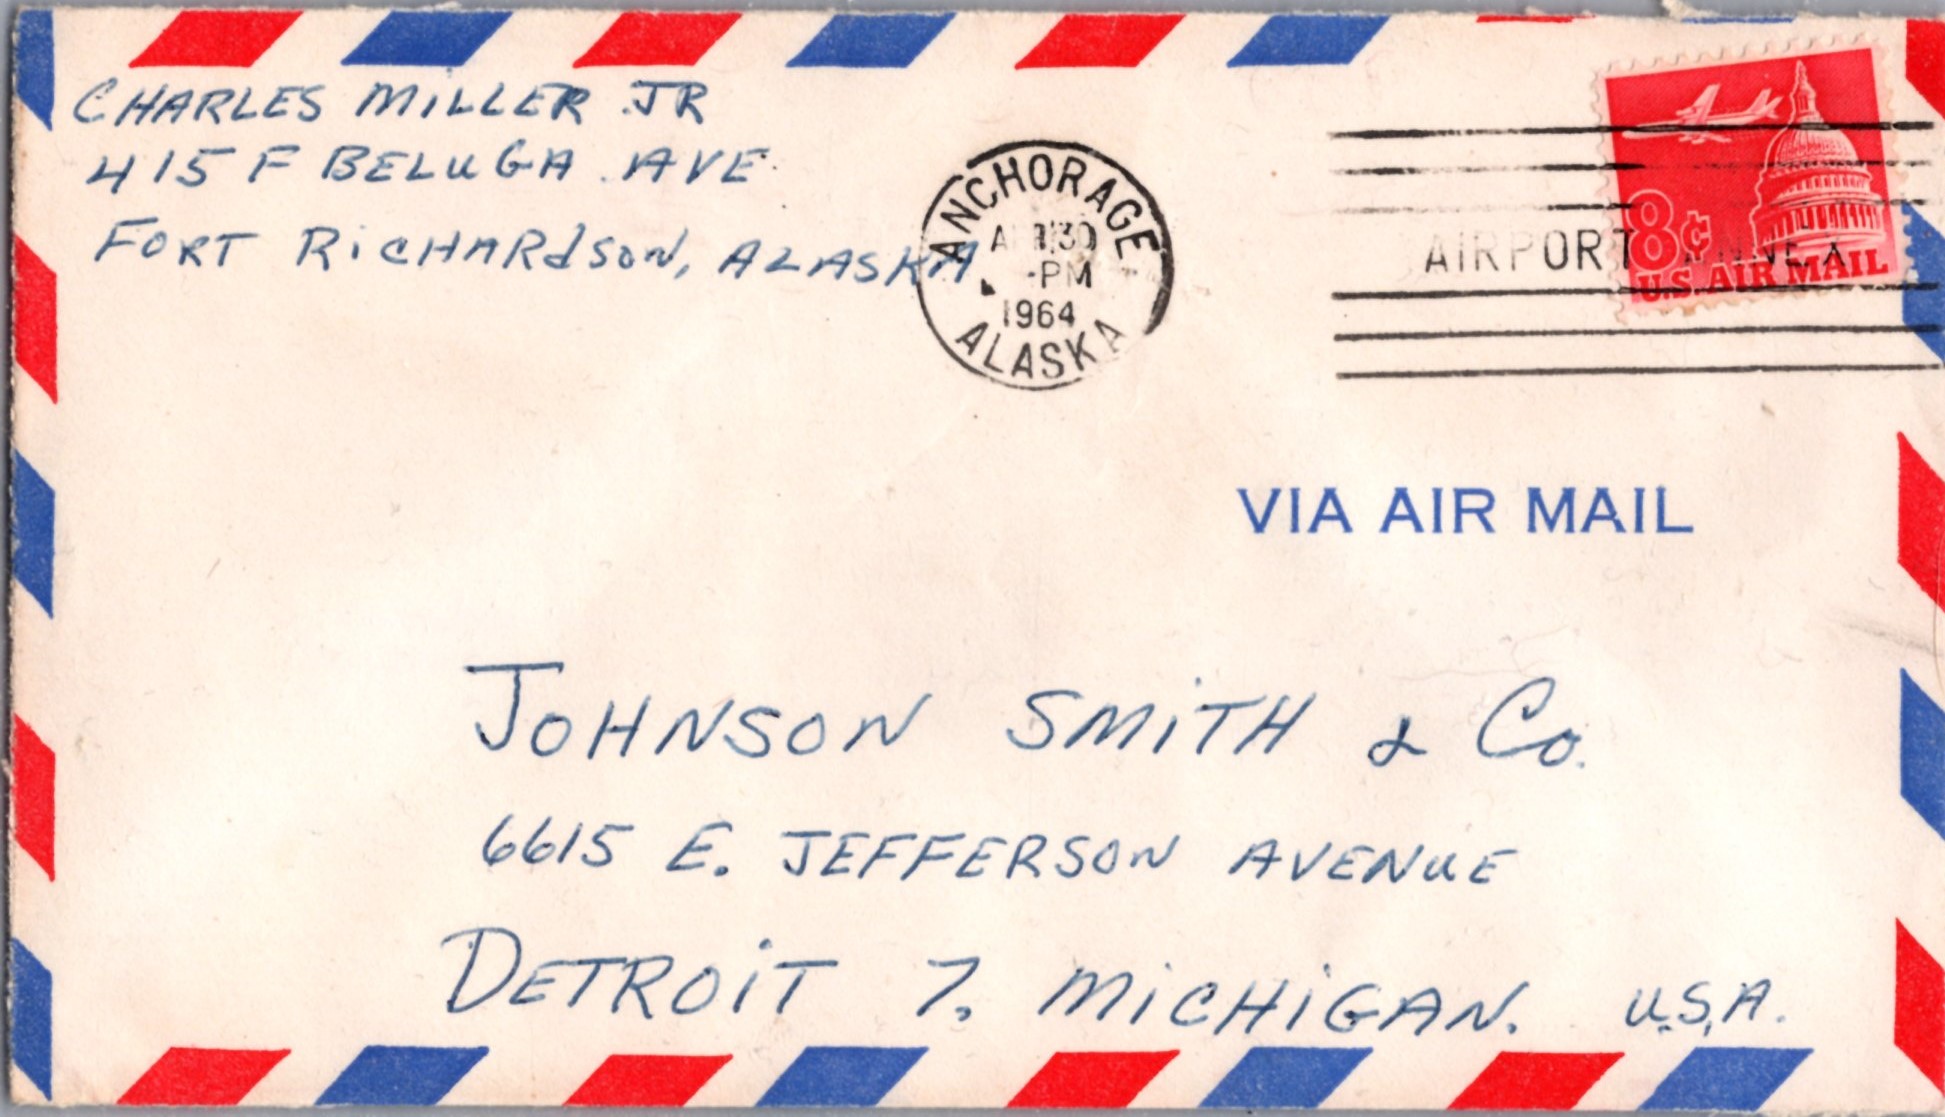 CHARLES MILLER JR
415 F BELUGA AVE
FORT RICHARDSON, ALASKA
ANCHORAGE
30
PM
1964
ALASKA
AIRPORT ANNEX
8¢
U.S. AIR MAIL
VIA AIR MAIL
JOHNSON SMITH & Co.
6615 E. JEFFERSON AVENUE
DETROIT 7. MICHIGAN. U.S.A.